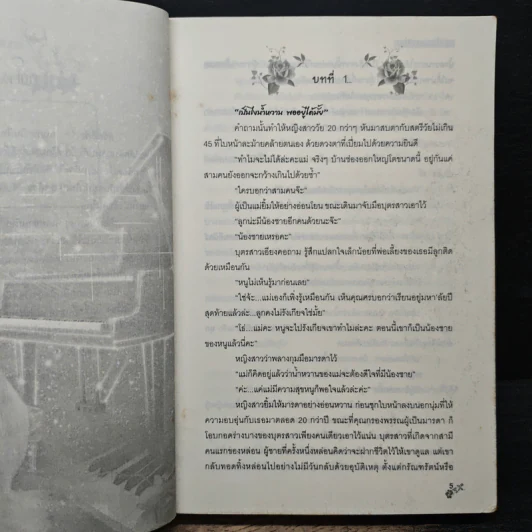 บทที่ 1.
"เป็นไงน้ำหวาน พออยู่ได้มั้ย"
คำถามนั้นทำให้หญิงสาววัย 20 กว่าๆ หันมาสบตากับสตรีวัยไม่เกิน
45 ที่ใบหน้าละม้ายคล้ายตนเอง ด้วยดวงตาที่เปี่ยมไปด้วยความยินดี
"ทำไมจะไม่ได้ล่ะคะแม่ จริงๆ บ้านช่องออกใหญ่โตขนาดนี้ อยู่กันแค่
สามคนยังออกจะกว้างเกินไปด้วยซ้ำ"
"ใครบอกว่าสามคนจ๊ะ"
ผู้เป็นแม่ยิ้มให้อย่างอ่อนโยน ขณะเดินมาจับมือบุตรสาวเอาไว้
"ลูกน่ะมีน้องชายอีกคนด้วยนะจ๊ะ"
"น้องชายเหรอคะ"
บุตรสาวเอียงคอถาม รู้สึกแปลกใจเล็กน้อยที่พ่อเลี้ยงของเธอมีลูกติด
ด้วยเหมือนกัน
"หนูไม่เห็นรู้มาก่อนเลย"
"ใช่จ้ะ...แม่เองก็เพิ่งรู้เหมือนกัน เห็นคุณครบอกว่าเรียนอยู่มหา'ลัยปี
สุดท้ายแล้วล่ะ...ลูกคงไม่รังเกียจใช่มั้ย"
"โธ่...แม่คะ หนูจะไปรังเกียจเขาทำไมล่ะคะ ตอนนี้เขาก็เป็นน้องชาย
ของหนูแล้วนี่คะ"
หญิงสาวว่าพลางกุมมือมารดาไว้
"แม่ก็คิดอยู่แล้วว่าน้ำหวานของแม่จะต้องดีใจที่มีน้องชาย"
"ค่ะ...แค่แม่มีความสุขหนูก็พอใจแล้วล่ะค่ะ"
หญิงสาวยิ้มให้มารดาอย่างอ่อนหวาน ก่อนซุกใบหน้าลงบนอกนุ่มที่ให้
ความอบอุ่นกับเธอมาตลอด 20 กว่าปี ขณะที่คุณกรองพรรณผู้เป็นมารดา ก็
โอบกอดร่างบางของบุตรสาวเพียงคนเดียวเอาไว้แน่น บุตรสาวที่เกิดจากสามี
คนแรกของหล่อน ผู้ชายที่ครั้งหนึ่งหล่อนคิดว่าจะฝากชีวิตไว้ให้เขาดูแล แต่เขา
กลับทอดทิ้งหล่อนไปอย่างไม่มีวันกลับด้วยอุบัติเหตุ ตั้งแต่กรัณฑรัตน์หรือ
5